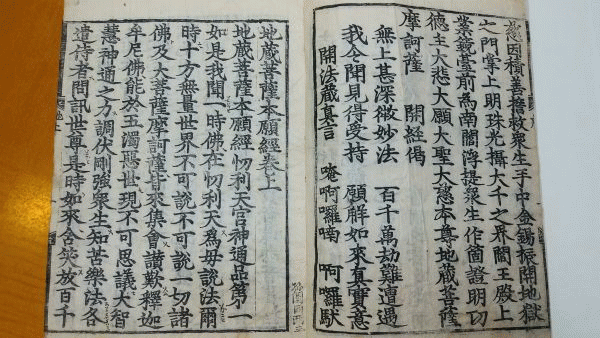 慈因積善誓救衆生手中金錫振開地獄
之門掌上明珠光攝大千之界閻王殿上
業鏡臺前為南閻浮提衆生作箇證明功
德主大悲大願大聖大慈本尊地藏菩薩
摩訶薩 開經偈
無上甚深微妙法 百千萬劫難遭遇
我今聞見得受持 願解如來真實意
開法藏真言 唵啊囉喃 啊囉馱
地藏菩薩本願經卷上
地藏菩薩本願經忉利天宮神通品第一
如是我聞一時佛在忉利天為母說法爾
時十方無量世界不可說不可說一切諸
佛及大菩薩摩訶薩皆來集會讚歎釋迦
牟尼佛能於五濁惡世現不可思議大智
慧神通之力調伏剛強衆生知苦樂法各
遣侍者問訊世尊是時如來含笑放百千